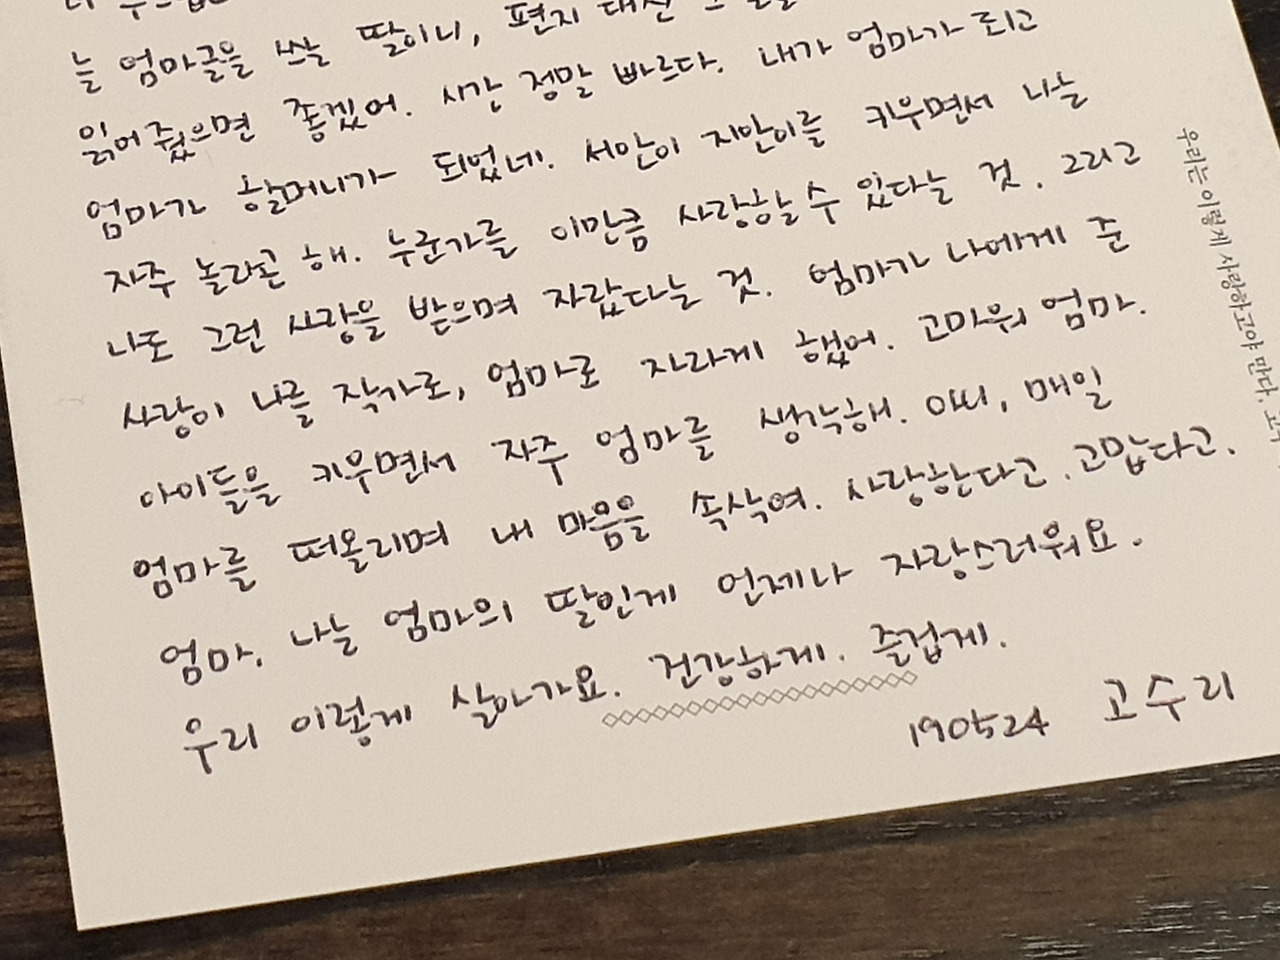 는 엄마글을 쓸 딸이니, 편지 대신
읽어줬으면 좋겠어. 시간 정말 빠르다. 내가 엄마가 되고
엄마가 할머니가 되었네. 서안이 지안이를 키우면서 나는
자주 놀라곤 해. 누군가를 이만큼 사랑할 수 있다는 것. 그리고
나도 그런 사랑을 받으며 자랐다는 것. 엄마가 나에게 준
사랑이 나를 작가로, 엄마로 자라게 했어. 고마워 엄마.
아이들을 키우면서 자주 엄마를 생각해. 아씨, 매일
엄마를 떠올리며 내 마음을 속삭여. 사랑한다고. 고맙다고.
엄마. 나는 엄마의 딸인게 언제나 자랑스러워요.
우리 이렇게 살아가요. 건강하게. 즐겁게.
190524 고수리
우리는 이렇게 사랑하고야 만다.